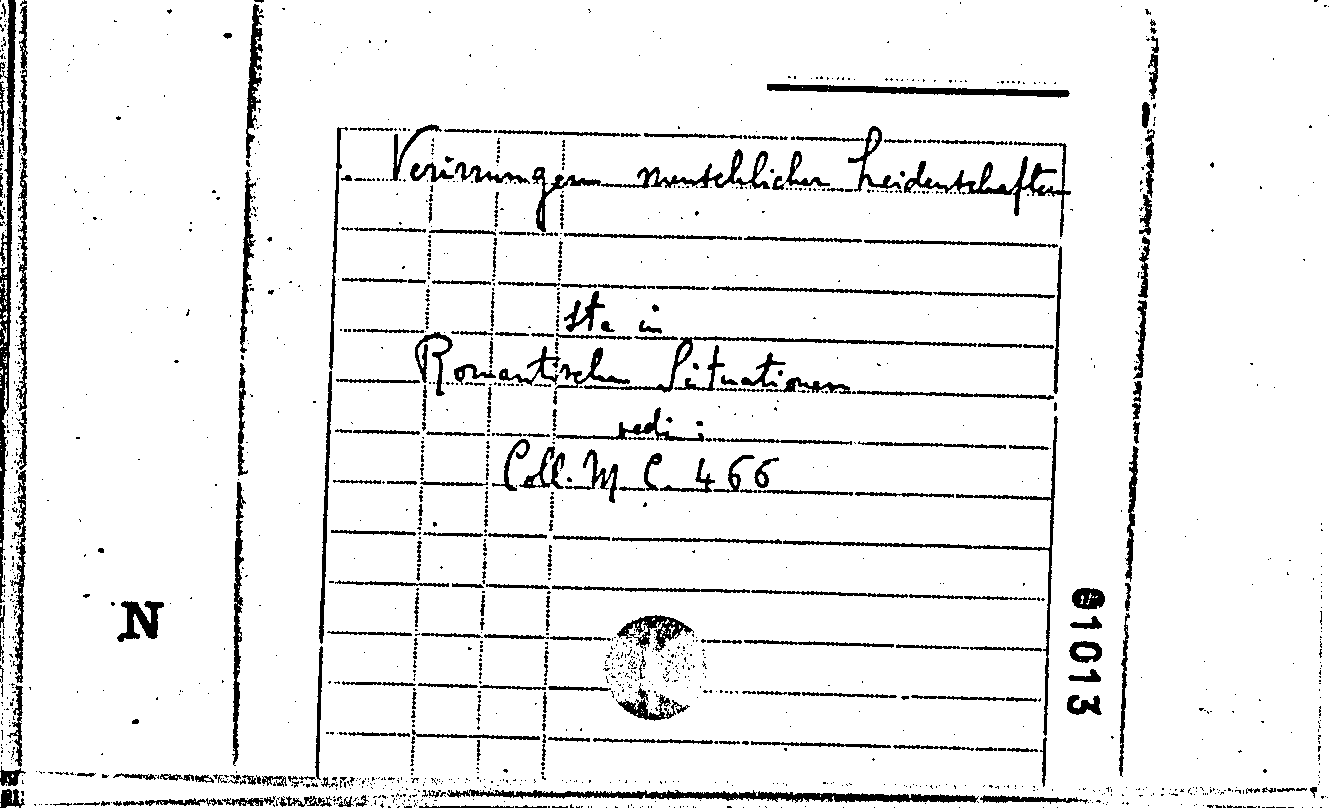 . Verirrungen menschlicher Leidenschaften
sta in
Romantischen Situationen
vedi :
Coll. M. C. 466
N
01013